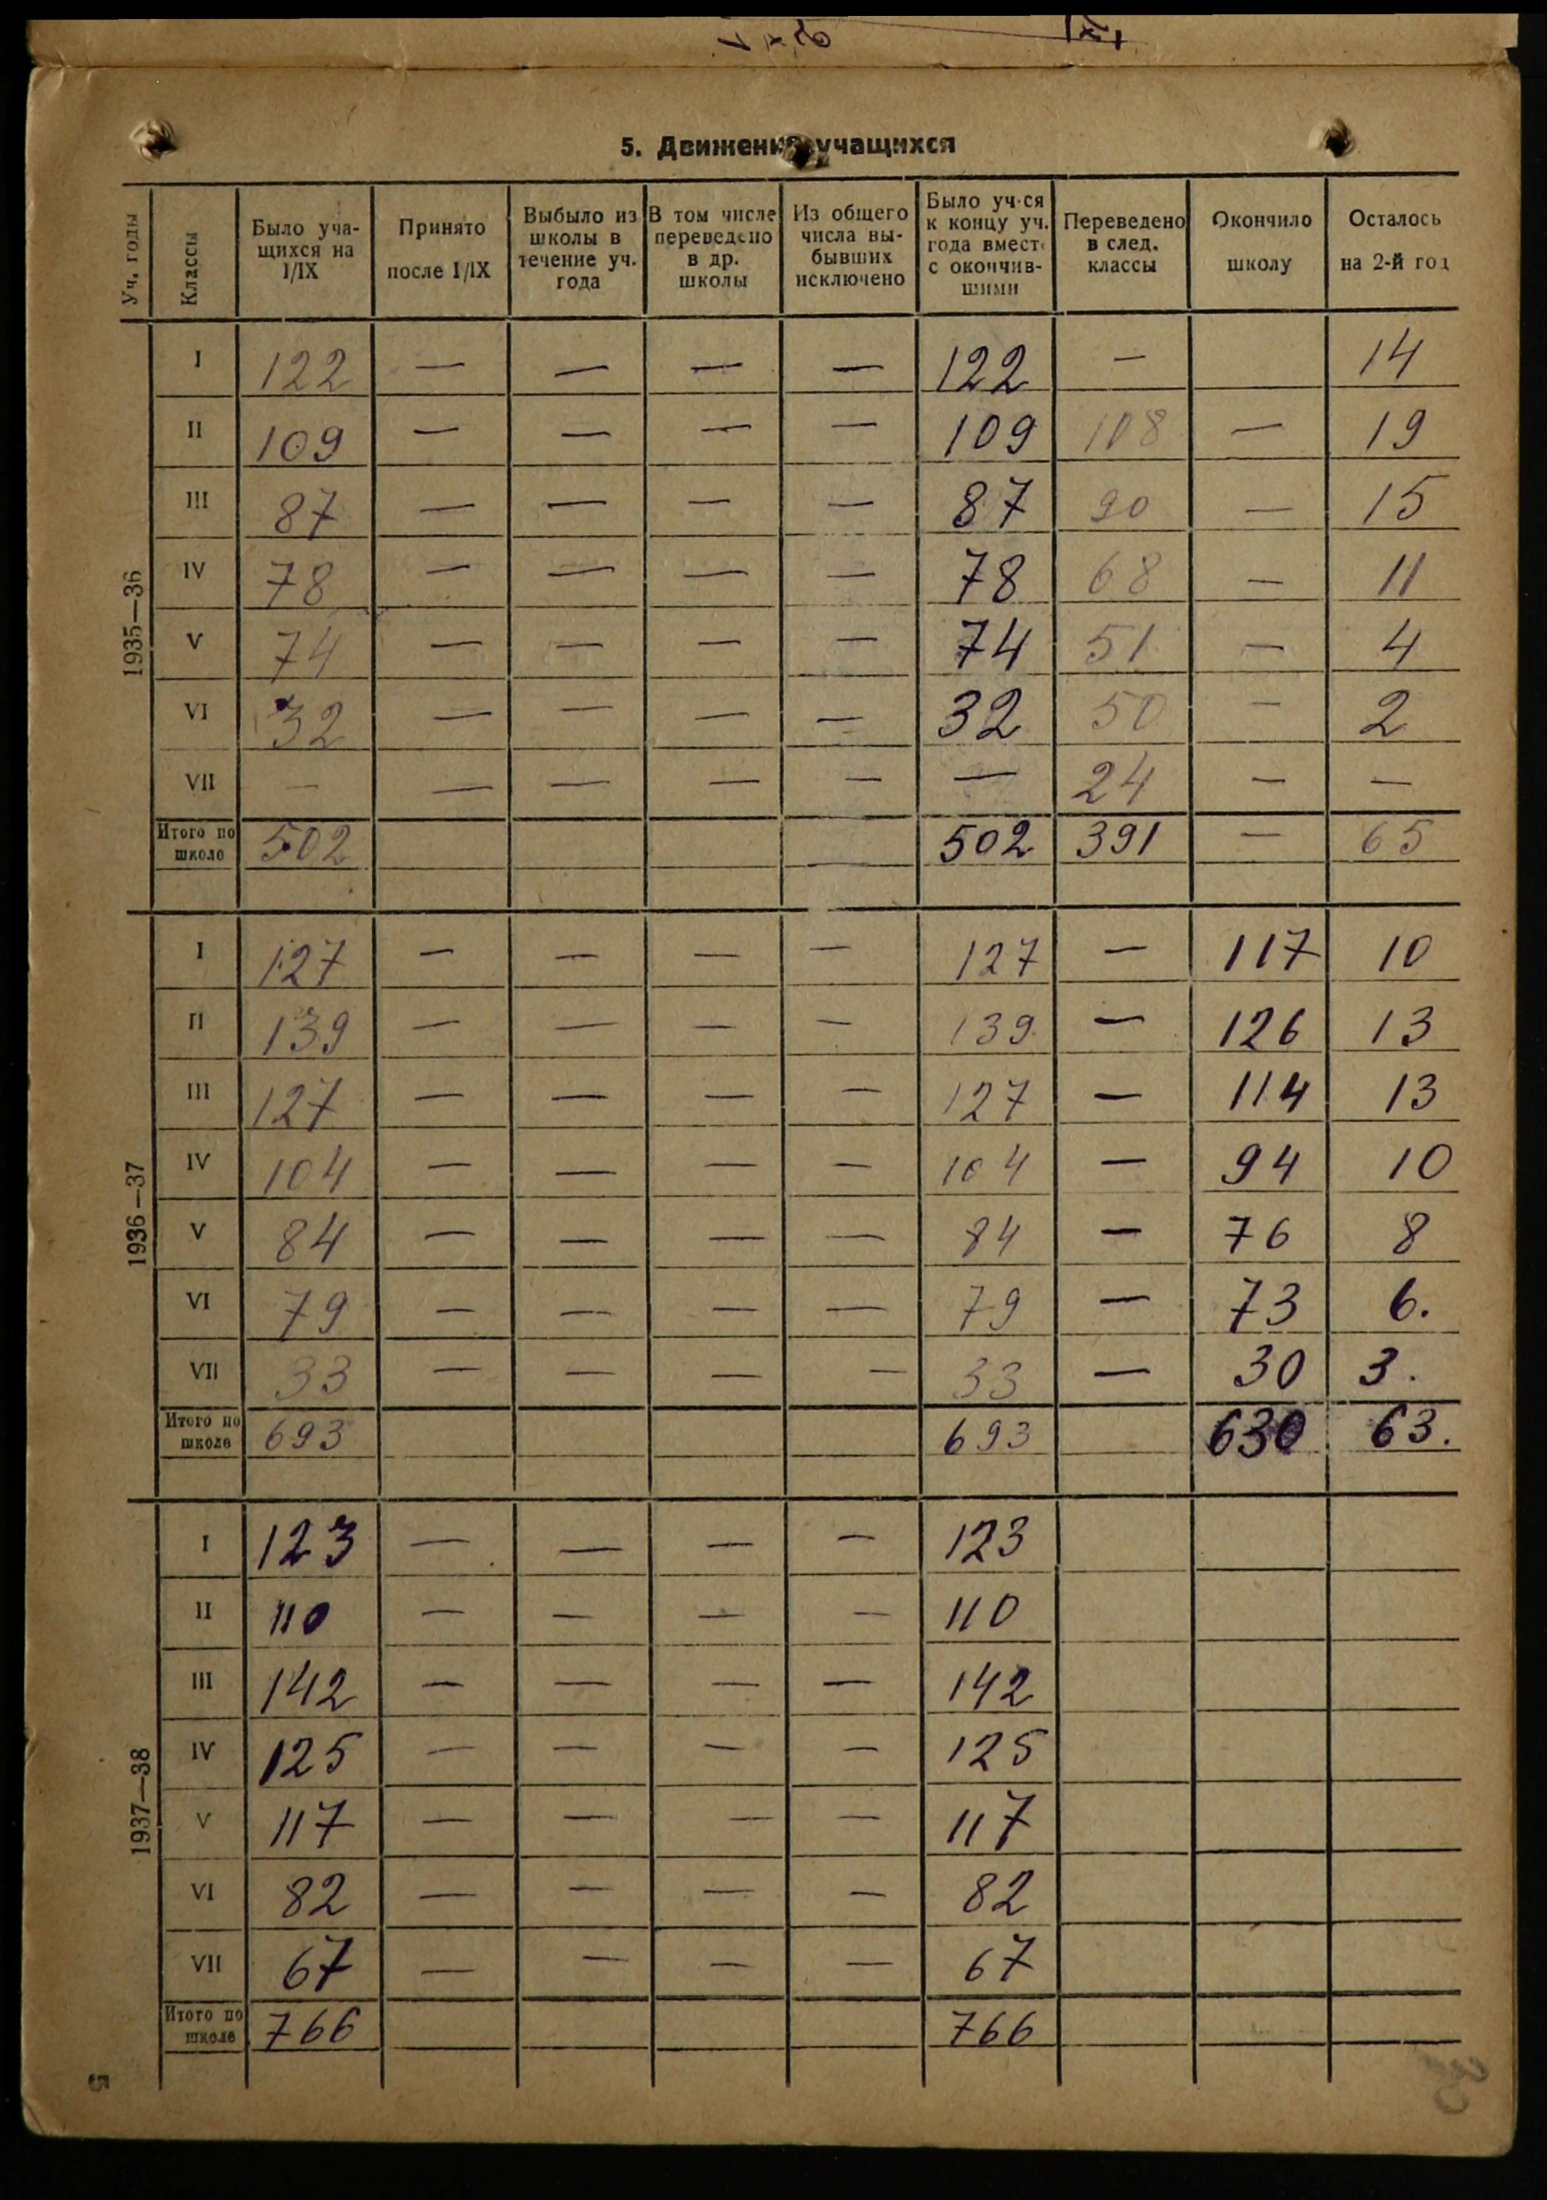 5. Движение учащихся
Уч. годы | Классы | Было уча-щихся на I/IX | Принято после I/IX | Выбыло из школы в течение уч. года | В том числе переведено в др. школы | Из общего числа вы-бывших исключено | Было уч-ся к концу уч. года вместе с окончив-шими | Переведено в след. классы | Окончило школу | Осталось на 2-й год
1935—36
I | 122 | — | — | — | — | 122 | — | | 14
II | 109 | — | — | — | — | 109 | 108 | — | 19
III | 87 | — | — | — | — | 87 | 90 | — | 15
IV | 78 | — | — | — | — | 78 | 68 | — | 11
V | 74 | — | — | — | — | 74 | 51 | — | 4
VI | 32 | — | — | — | — | 32 | 50 | — | 2
VII | — | — | — | — | — | — | 24 | — | —
Итого по школе | 502 | | | | | 502 | 391 | — | 65
1936—37
I | 127 | — | — | — | — | 127 | — | 117 | 10
II | 139 | — | — | — | — | 139. | — | 126 | 13
III | 127 | — | — | — | — | 127 | — | 114 | 13
IV | 104 | — | — | — | — | 104 | — | 94 | 10
V | 84 | — | — | — | — | 84 | — | 76 | 8
VI | 79 | — | — | — | — | 79 | — | 73 | 6.
VII | 33 | — | — | — | — | 33 | — | 30 | 3.
Итого по школе | 693 | | | | | 693 | | 630 | 63.
1937—38
I | 123 | — | — | — | — | 123
II | 110 | — | — | — | — | 110
III | 142 | — | — | — | — | 142
IV | 125 | — | — | — | — | 125
V | 117 | — | — | — | — | 117
VI | 82 | — | — | — | — | 82
VII | 67 | — | — | — | — | 67
Итого по школе | 766 | | | | | 766
5